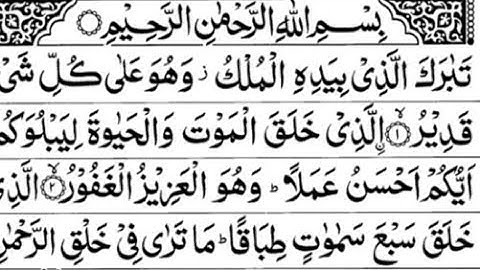 بِسْمِ اللهِ الرَّحْمٰنِ الرَّحِيْمِ
تَبٰرَكَ الَّذِىْ بِيَدِهِ الْمُلْكُ ز وَهُوَ عَلٰى كُلِّ شَىْ
قَدِيْرُ ۙ﴿۱﴾ اۨلَّذِىْ خَلَقَ الْمَوْتَ وَالْحَيٰوةَ لِيَبْلُوَكُمْ
اَيُّكُمْ اَحْسَنُ عَمَلًا ؕ وَهُوَ الْعَزِيْزُ الْغَفُوْرُ ۙ﴿۲﴾ الَّذِىْ
خَلَقَ سَبْعَ سَمٰوٰتٍ طِبَاقًا ؕ مَا تَرٰى فِىْ خَلْقِ الرَّحْمٰنِ